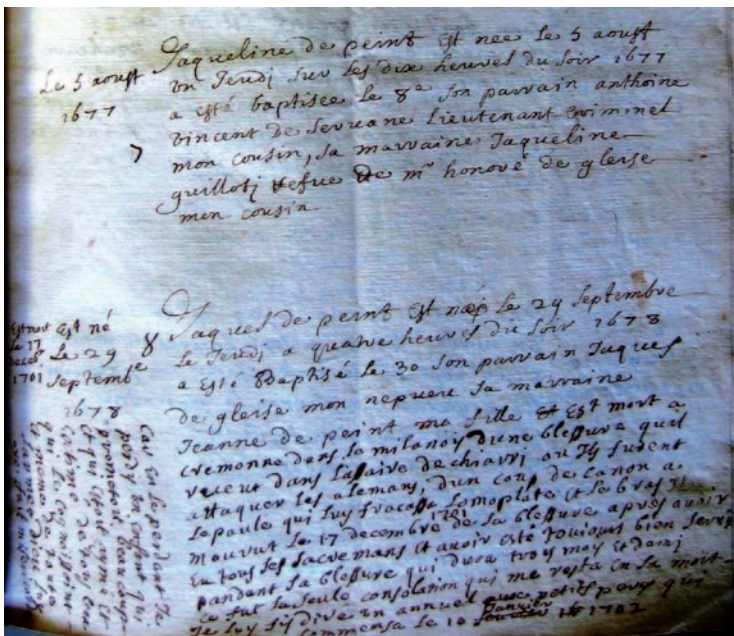 Le 5 aoust
1677
7
Jaqueline de peint Est nee le 5 aoust
un Jeudi sur les dix heures du soir 1677
a esté baptisee le 8e son parrain anthoine
vincent de servane Lieutenant criminel
mon cousin, sa marraine Jaqueline
guilloti vefue de mr honoré de gleise
mon cousin
Est mort
le 17
decebr
1701
Est né
le 29
septembe
1678
8
Jaques de peint Est né le 29 septembre
le Jeudi a quatre heures du soir 1678
a Esté Baptisé le 30 son parrain Jaques
de gleise mon nepueu sa marraine
Jeanne de peint ma fille et Est mort a
cremonne dans le milanois d'une blessure quil
receut dans lafaire de chiarri ou Ils furent
attaquer les alemans, d'un coup de canon a
lepaule qui luy fracassa lomoplate et le bras Il
mourut le 17 decembre 1701 de sa blessure apres avoir
Eu tous ses sacremans et avoir esté toujours bien servi
pandent sa blessure qui dura trois mois et demi
ce fut la seule consolation qui me resta en sa mort
Je luy fis dire un annuel aux petits peres qui
commensa le 10 Janvier 1702
Car Et cependant Je
perdy un enfant qui
prometoit beaucoup
et qui estoit aymé et
estimé de tous ceux
qui le cognoissoint
et mesme de toute